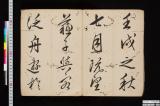 壬戌之秋
七月既望
蘇子與客
泛舟遊於